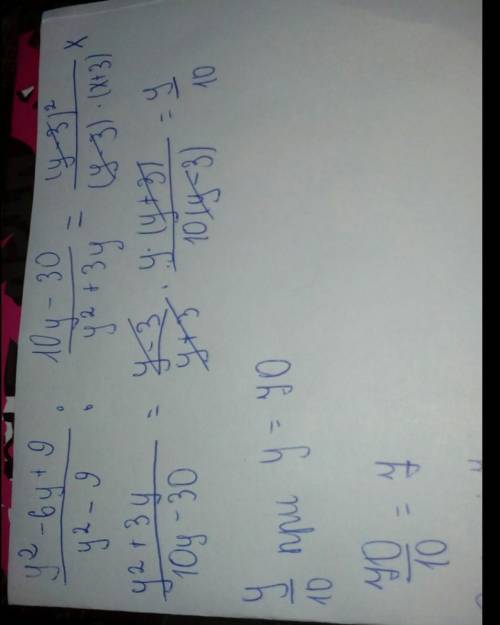 (y² - 6y + 9)/(y² - 9) : (10y - 30)/(y² + 3y) = (y-3)²/((y-3)·(x+3)) ×
(y² + 3y)/(10y - 30) = (y-3)/(y+3) · y·(y+3)/(10(y-3)) = y/10
y/10 при y = 40
40/10 = 4